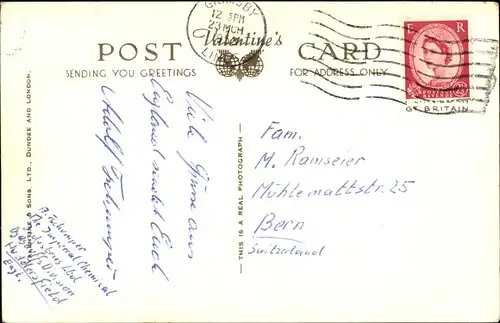 GRIMSBY
12 PM
23 MCH
LINCS
E R
2½
POST CARD
Valentine's
SENDING YOU GREETINGS
FOR ADDRESS ONLY
GT. BRITAIN.
VALENTINE & SONS, LTD., DUNDEE AND LONDON.
THIS IS A REAL PHOTOGRAPH
Viele Grüsse aus
England sendet Euch
Adolf
The Imperial Chemical
Ltd
Division
Huddersfield
Engl.
Fam.
M. Ramseier
Mühlemattstr. 25
Bern
Switzerland